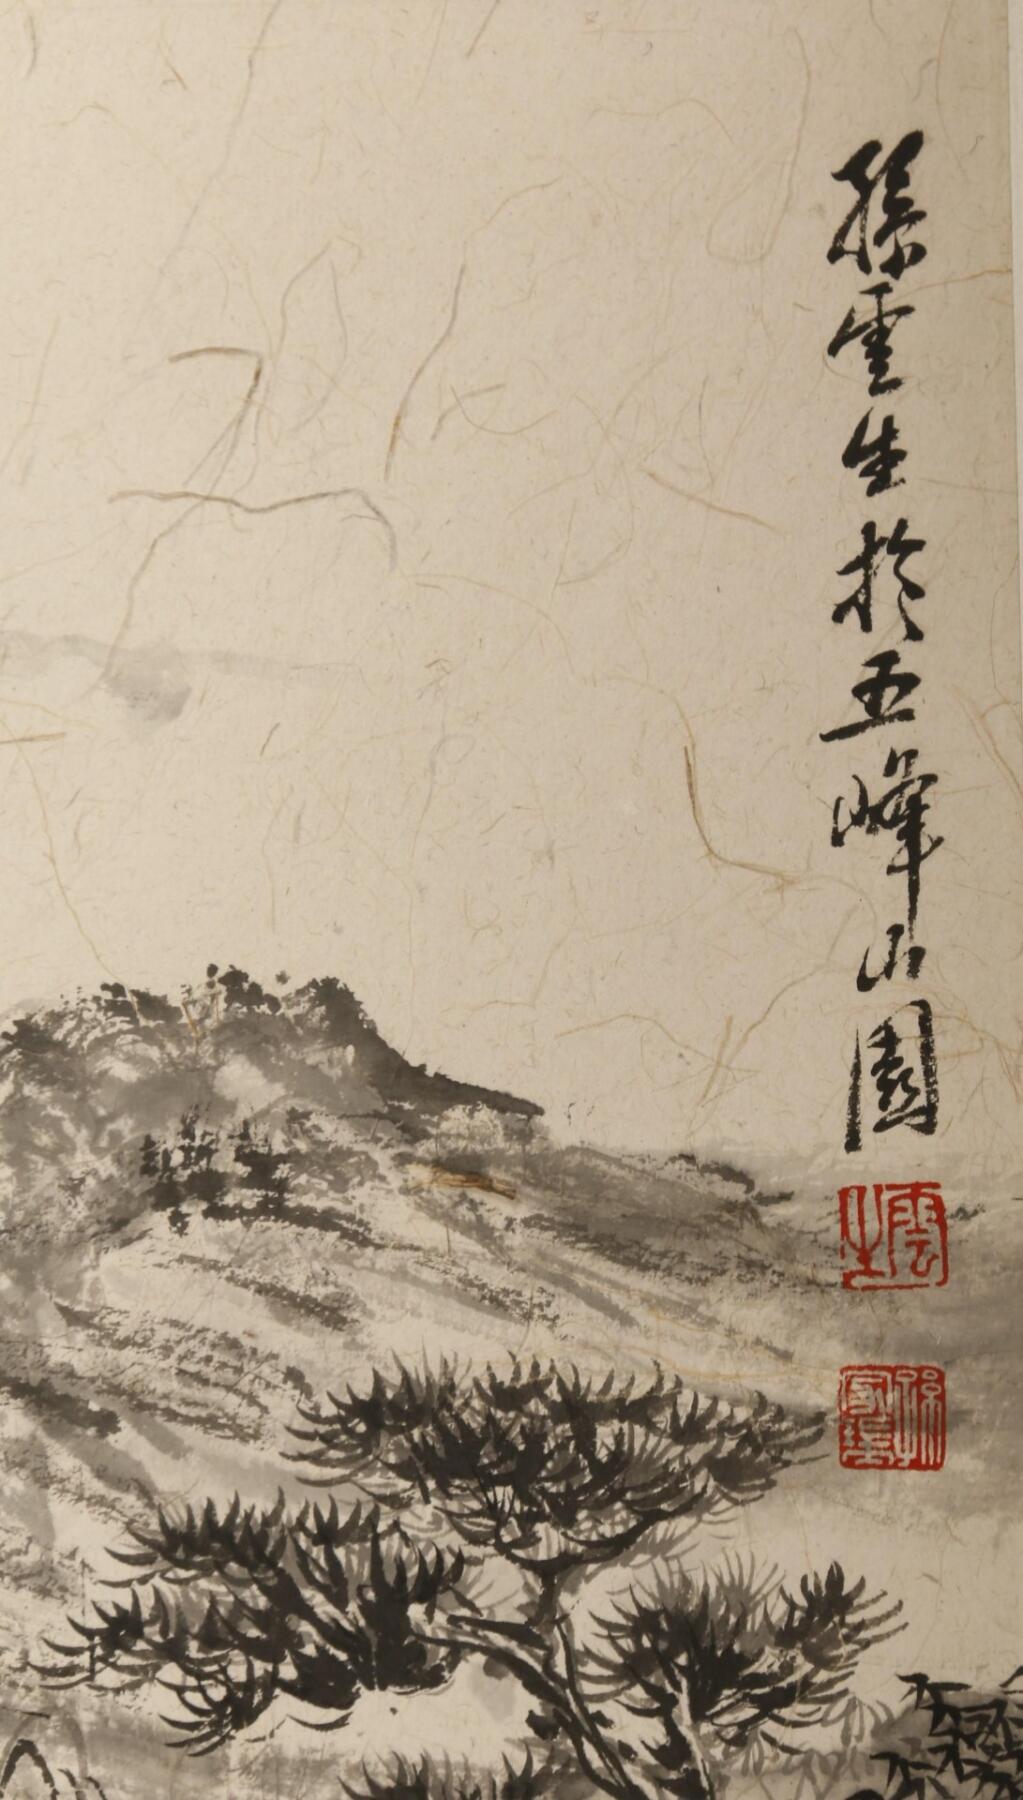 孫雲生於五峰山園
雲生
孫家瑞